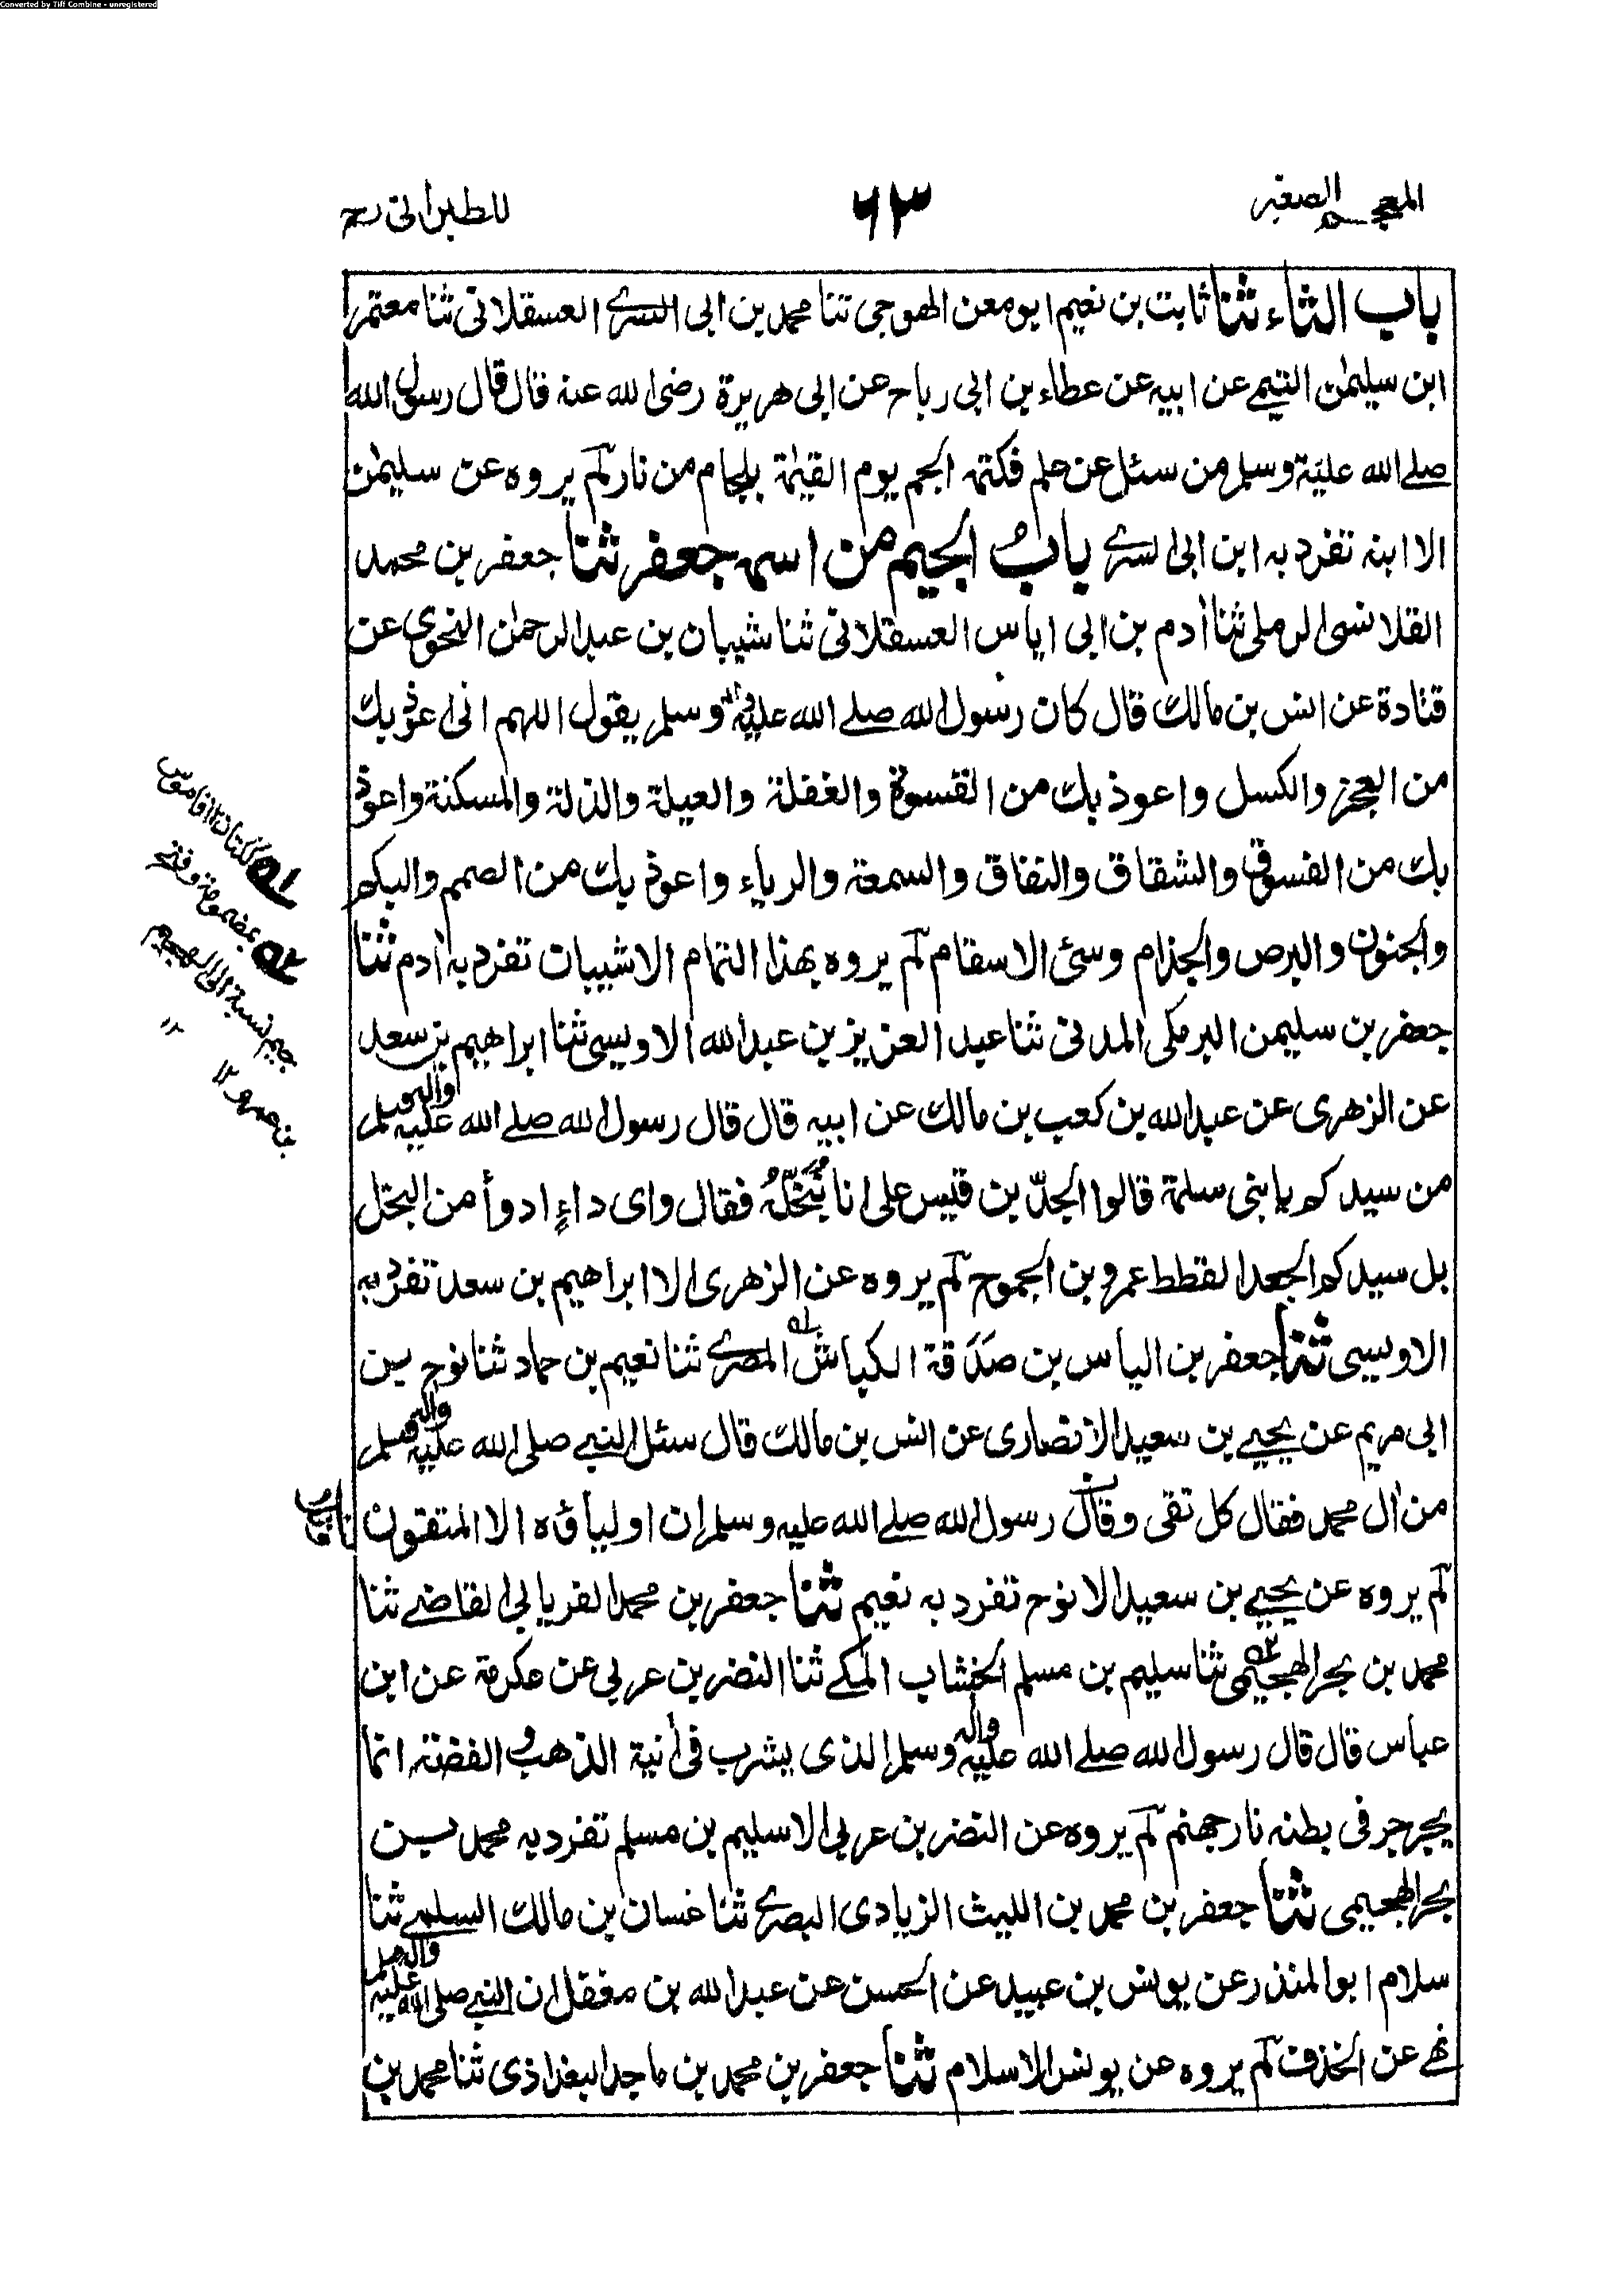 Converted by Tiff Combine - unregistered
المعجم الصغير
٦٣
للطبرانی رح
باب الثاء ثنا ثابت بن نعيم ابو معن الهوجی ثنا محمد بن ابی السری العسقلانی ثنا معتمر
ابن سليمٰن التيمے عن ابيه عن عطاء بن ابی رباح عن ابی هريرة رضی الله عنه قال قال رسول الله
صلے الله عليه وسلم من سئل عن علم فكتمه الجم يوم القيٰمة بلجام من نار لم يروه عن سليمٰن
الا ابنه تفرد به ابن ابی السرے باب الجيم من اسمه جعفر ثنا جعفر بن محمد
القلانسی الرملی ثنا اٰدم بن ابی اياس العسقلانی ثنا شيبان بن عبد الرحمٰن النحوی عن
قتادة عن انس بن مالك قال كان رسول الله صلے الله عليه واٰله وسلم يقول اللهم انی اعوذ بك
من العجز والكسل واعوذ بك من القسوة والغفلة والعيلة والذلة والمسكنة واعوذ
بك من الفسوق والشقاق والنفاق والسمعة والرياء واعوذ بك من الصمم والبكم
والجنون والبرص والجذام وسئ الاسقام لم يروه بهذا التمام الا شيبان تفرد به اٰدم ثنا
جعفر بن سليمن البرمكی المدنی ثنا عبد العزيز بن عبد الله الاويسی ثنا ابراهيم بن سعد
عن الزهری عن عبد الله بن كعب بن مالك عن ابيه قال قال رسول الله صلے الله عليه واٰله وسلم
من سيدكم يا بنی سلمة قالوا الجدّ بن قيس علی انا نُبَخِّلُهُ فقال وای داءٍ ادوأ من البخل
بل سيدكم الجعد القطط عمرو بن الجموح لم يروه عن الزهری الا ابراهيم بن سعد تفرد به
الاويسی ثنا جعفر بن الياس بن صَدَقة الكباش المصرے ثنا نعيم بن حماد ثنا نوح بن
ابی مريم عن يحيے بن سعيد الانصاری عن انس بن مالك قال سئل النبے صلی الله عليه واٰله وسلم
من اٰل محمد فقال كل تقی وقال رسول الله صلے الله عليه وسلم ان اولياؤه الا المتقون
لم يروه عن يحيے بن سعيد الا نوح تفرد به نعيم ثنا جعفر بن محمد الفريابی القاضے ثنا
محمد بن بحر الهجيمی ثنا سليم بن مسلم الخشاب المكے ثنا النضر بن عربی عن عكرمة عن ابن
عباس قال قال رسول الله صلے الله عليه واٰله وسلم الذی يشرب فی اٰنية الذهب والفضة انما
يجرجر فی بطنه نار جهنم لم يروه عن النضر بن عربی الا سليم بن مسلم تفرد به محمد بن
بحر الهجيمی ثنا جعفر بن محمد بن الليث الزيادی البصری ثنا غسان بن مالك السلمے ثنا
سلام ابو المنذر عن يونس بن عبيد عن الحسن عن عبد الله بن مغفل ان النبے صلی الله عليه واٰله وسلم
نهے عن الخذف لم يروه عن يونس الا سلام ثنا جعفر بن محمد بن ماجد البغداذی ثنا محمد بن
ككتان ١٢ قاموس
بمضمومة وفتح
جيم نسبة الی الهجيم
١٢